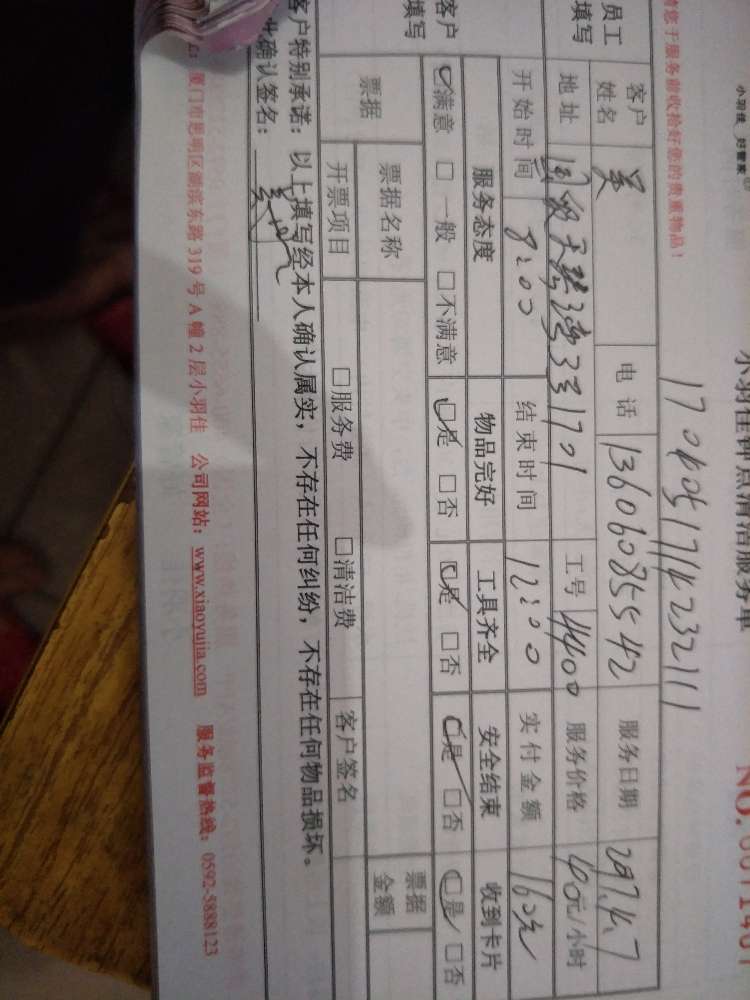 小羽佳 好管家
小羽佳钟点清洁服务单
NO.
1704051714232111
请您于服务前收拾好您的贵重物品！
员工填写
客户姓名 吴 电话 13606085542 服务日期 2017.4.7
地址 331701 工号 4400 服务价格 40元/小时
开始时间 8:00 结束时间 12:00 实付金额 160元
客户填写
服务态度 物品完好 工具齐全 安全结束 收到卡片
☑满意 □一般 □不满意 ☑是 □否 ☑是 □否 ☑是 □否 ☑是 □否
票据 票据名称 票据金额
开票项目 □服务费 □清洁费 客户签名
客户特别承诺：以上填写经本人确认属实，不存在任何纠纷，不存在任何物品损坏。
确认签名：
厦门市思明区湖滨东路319号A幢2层小羽佳 公司网站：www.xiaoyujia.com 服务监督热线：0592-5888123